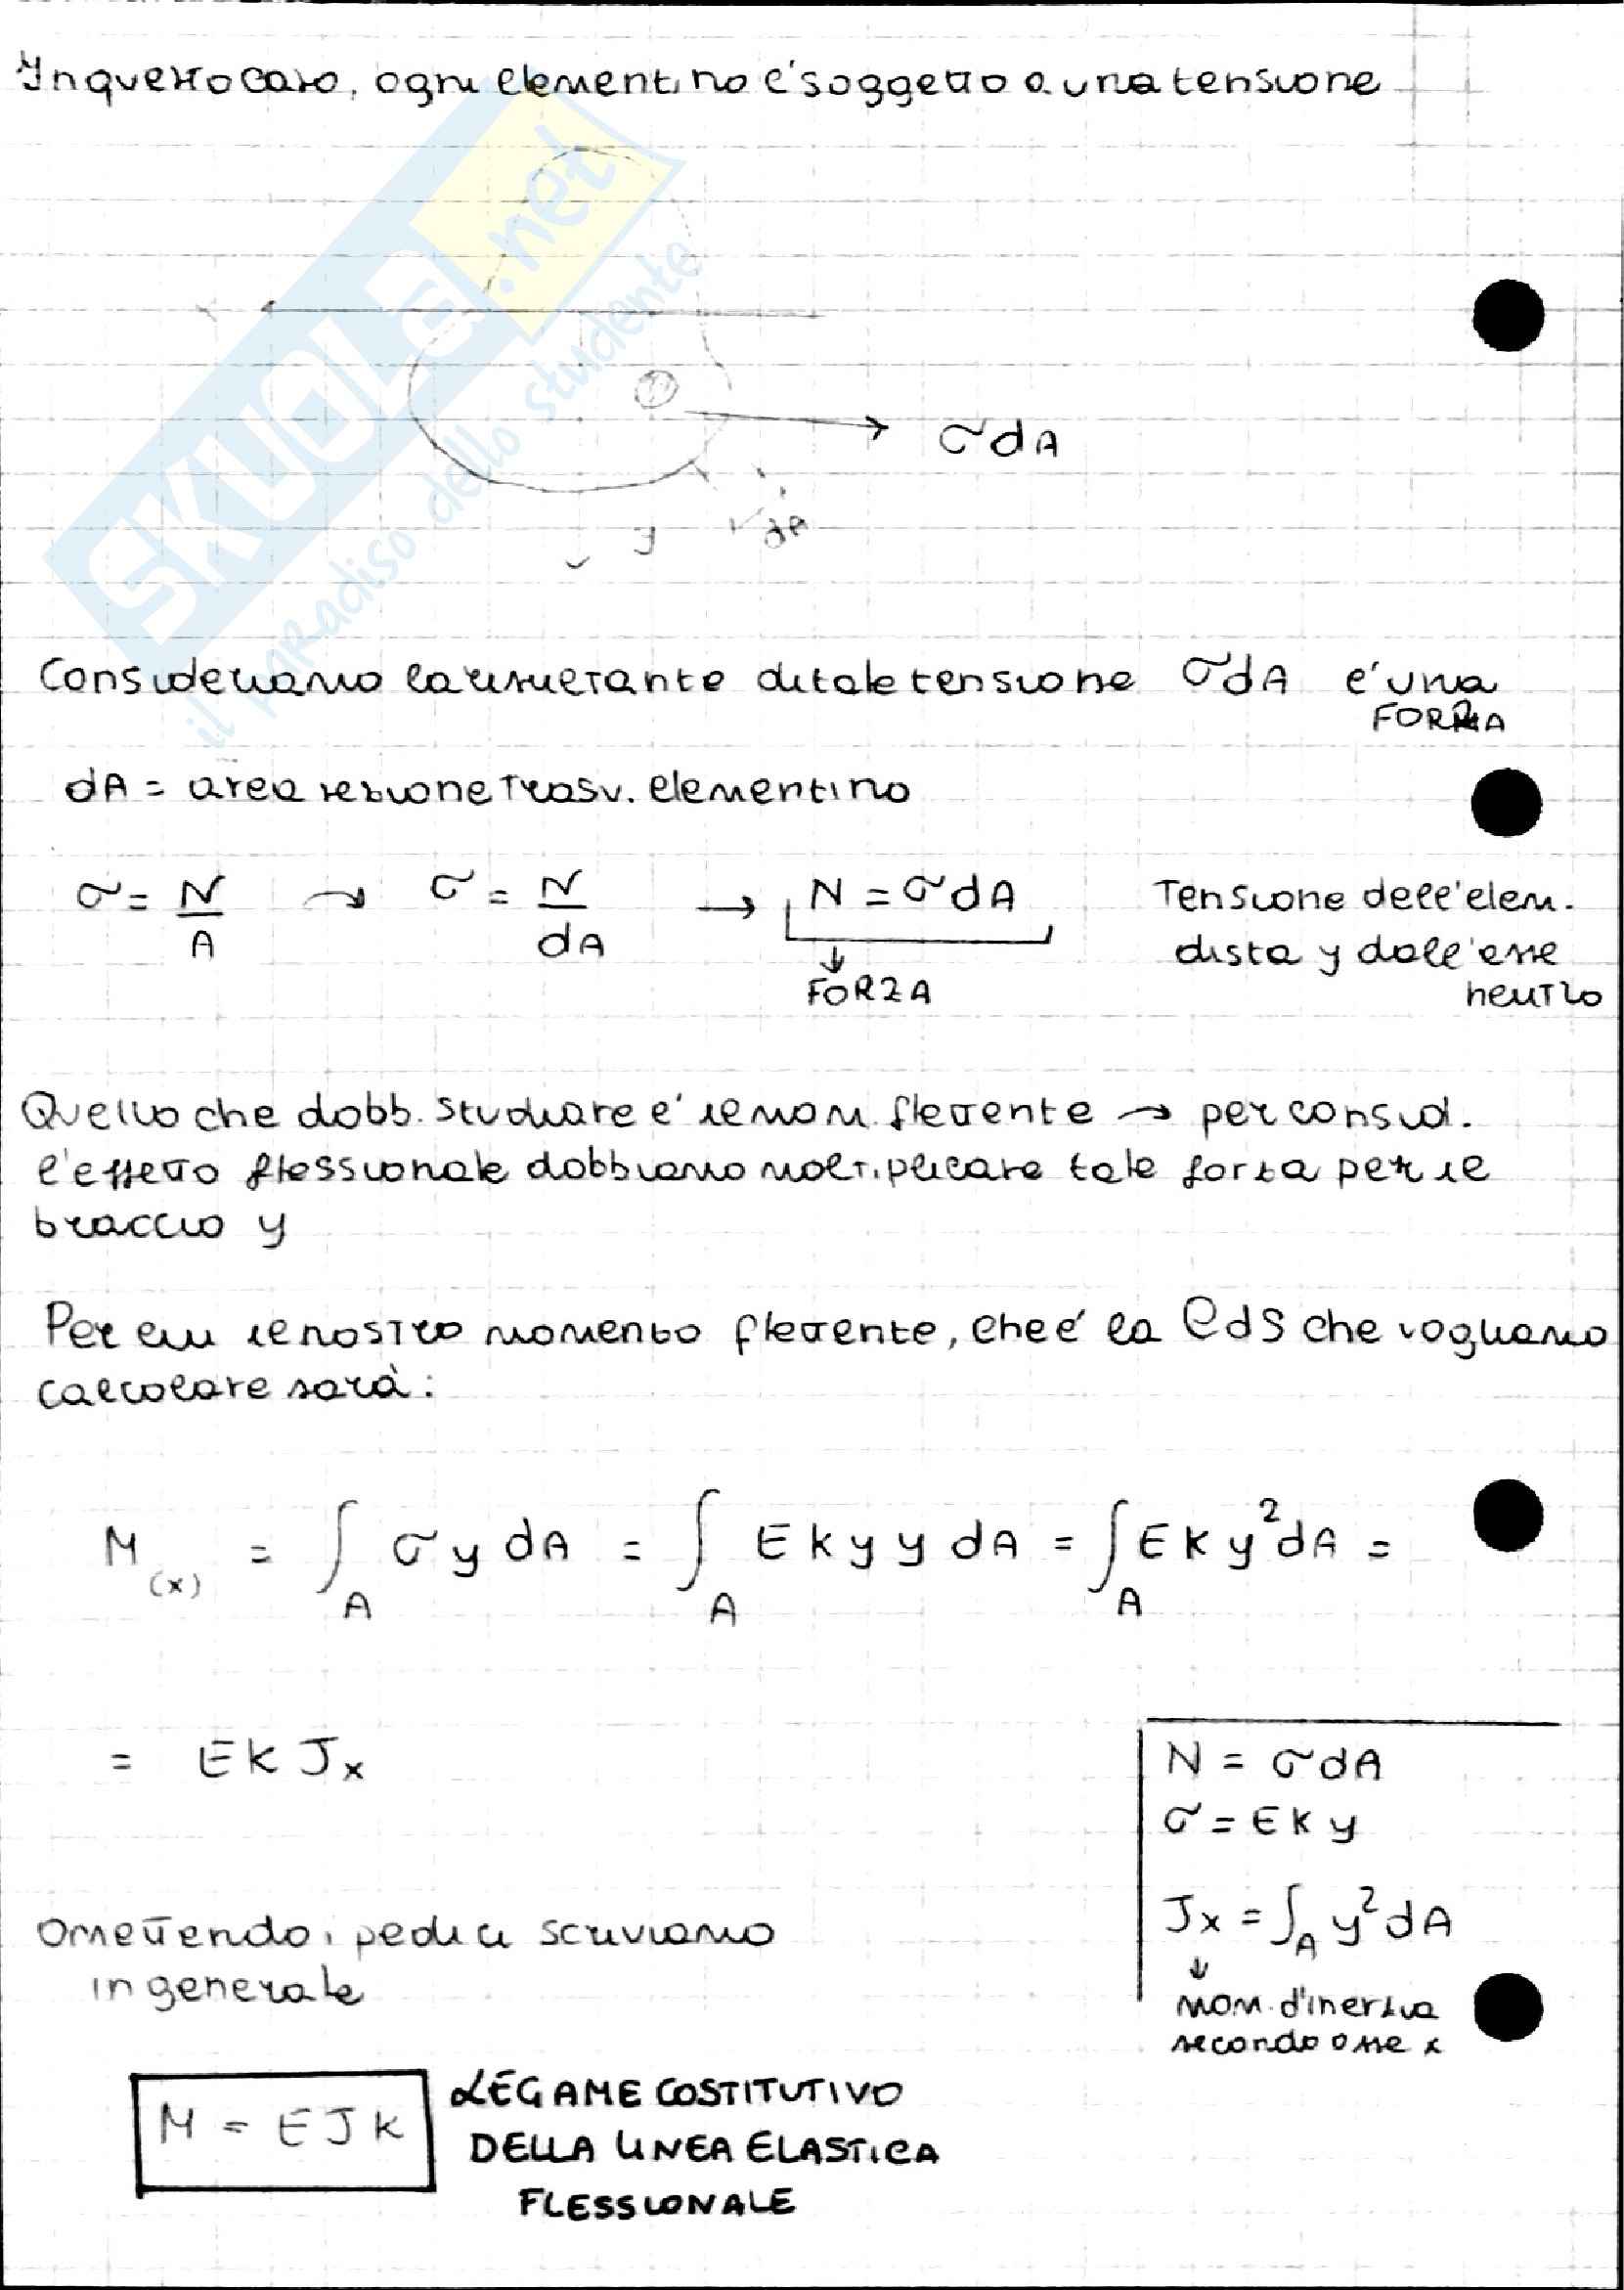 In questo caso, ogni elementino e' soggetto a una tensione
SKUOLA.net
il paradiso dello studente
x
σdA
y
dA
Consideriamo la risultante di tale tensione σdA e' una
FORZA
dA = area sezione trasv. elementino
σ = N/A → σ = N/dA → N = σdA
↓
FORZA
Tensione dell'elem.
dista y dall'asse
neutro
Quello che dobb. studiare e' il mom. flettente → per consid.
l'effetto flessionale dobbiamo moltiplicare tale forza per il
braccio y
Per cui il nostro momento flettente, che e' la CdS che vogliamo
calcolare sarà:
M(x) = ∫A σ y dA = ∫A E k y y dA = ∫A E k y² dA =
= E k Jx
N = σdA
σ = E k y
Jx = ∫A y² dA
↓
mom. d'inerzia
secondo asse x
Omettendo i pedici scriviamo
in generale
M = E J k
LEGAME COSTITUTIVO
DELLA LINEA ELASTICA
FLESSIONALE